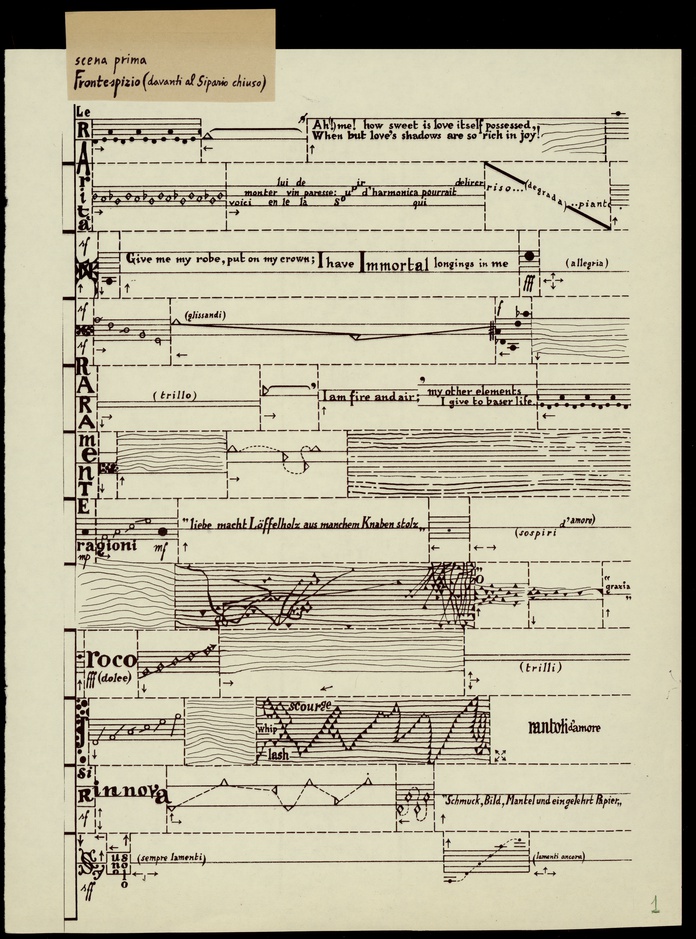 scena prima
Frontespizio (davanti al Sipario chiuso)
Le
RArità
Ah! me! how sweet is love itself possessed,
When but love's shadows are so rich in joy!
lui de ir delirer
monter vin paresse: up d'harmonica pourrait
voici en le là so qui
riso... (degrada) ..piant
sf
Give me my robe, put on my crown; I have Immortal longings in me
fff
(allegria)
sf
sf
(glissandi)
f
RARAmenTE
(trillo)
I am fire and air; my other elements
I give to baser life
"liebe macht Löffelholz aus manchem Knaben stolz„
(sospiri d'amore)
ragioni
mp
mf
"grazia"
roco
fff (dolce)
(trilli)
scourge
whip
lash
d'amore
si
Rinnova
sf
"Schmuck, Bild, Mantel und eingelehrt Papier„
sff
(sempre lamenti)
(lamenti ancora)
1